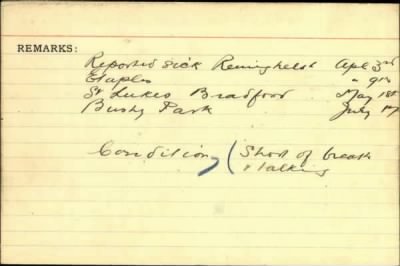 REMARKS:
Reported sick Reninghelst Apl 3rd
Etaples " 9th
St Lukes Bradford May 1st
Bushy Park July 17
Condition (Short of breath
& talking